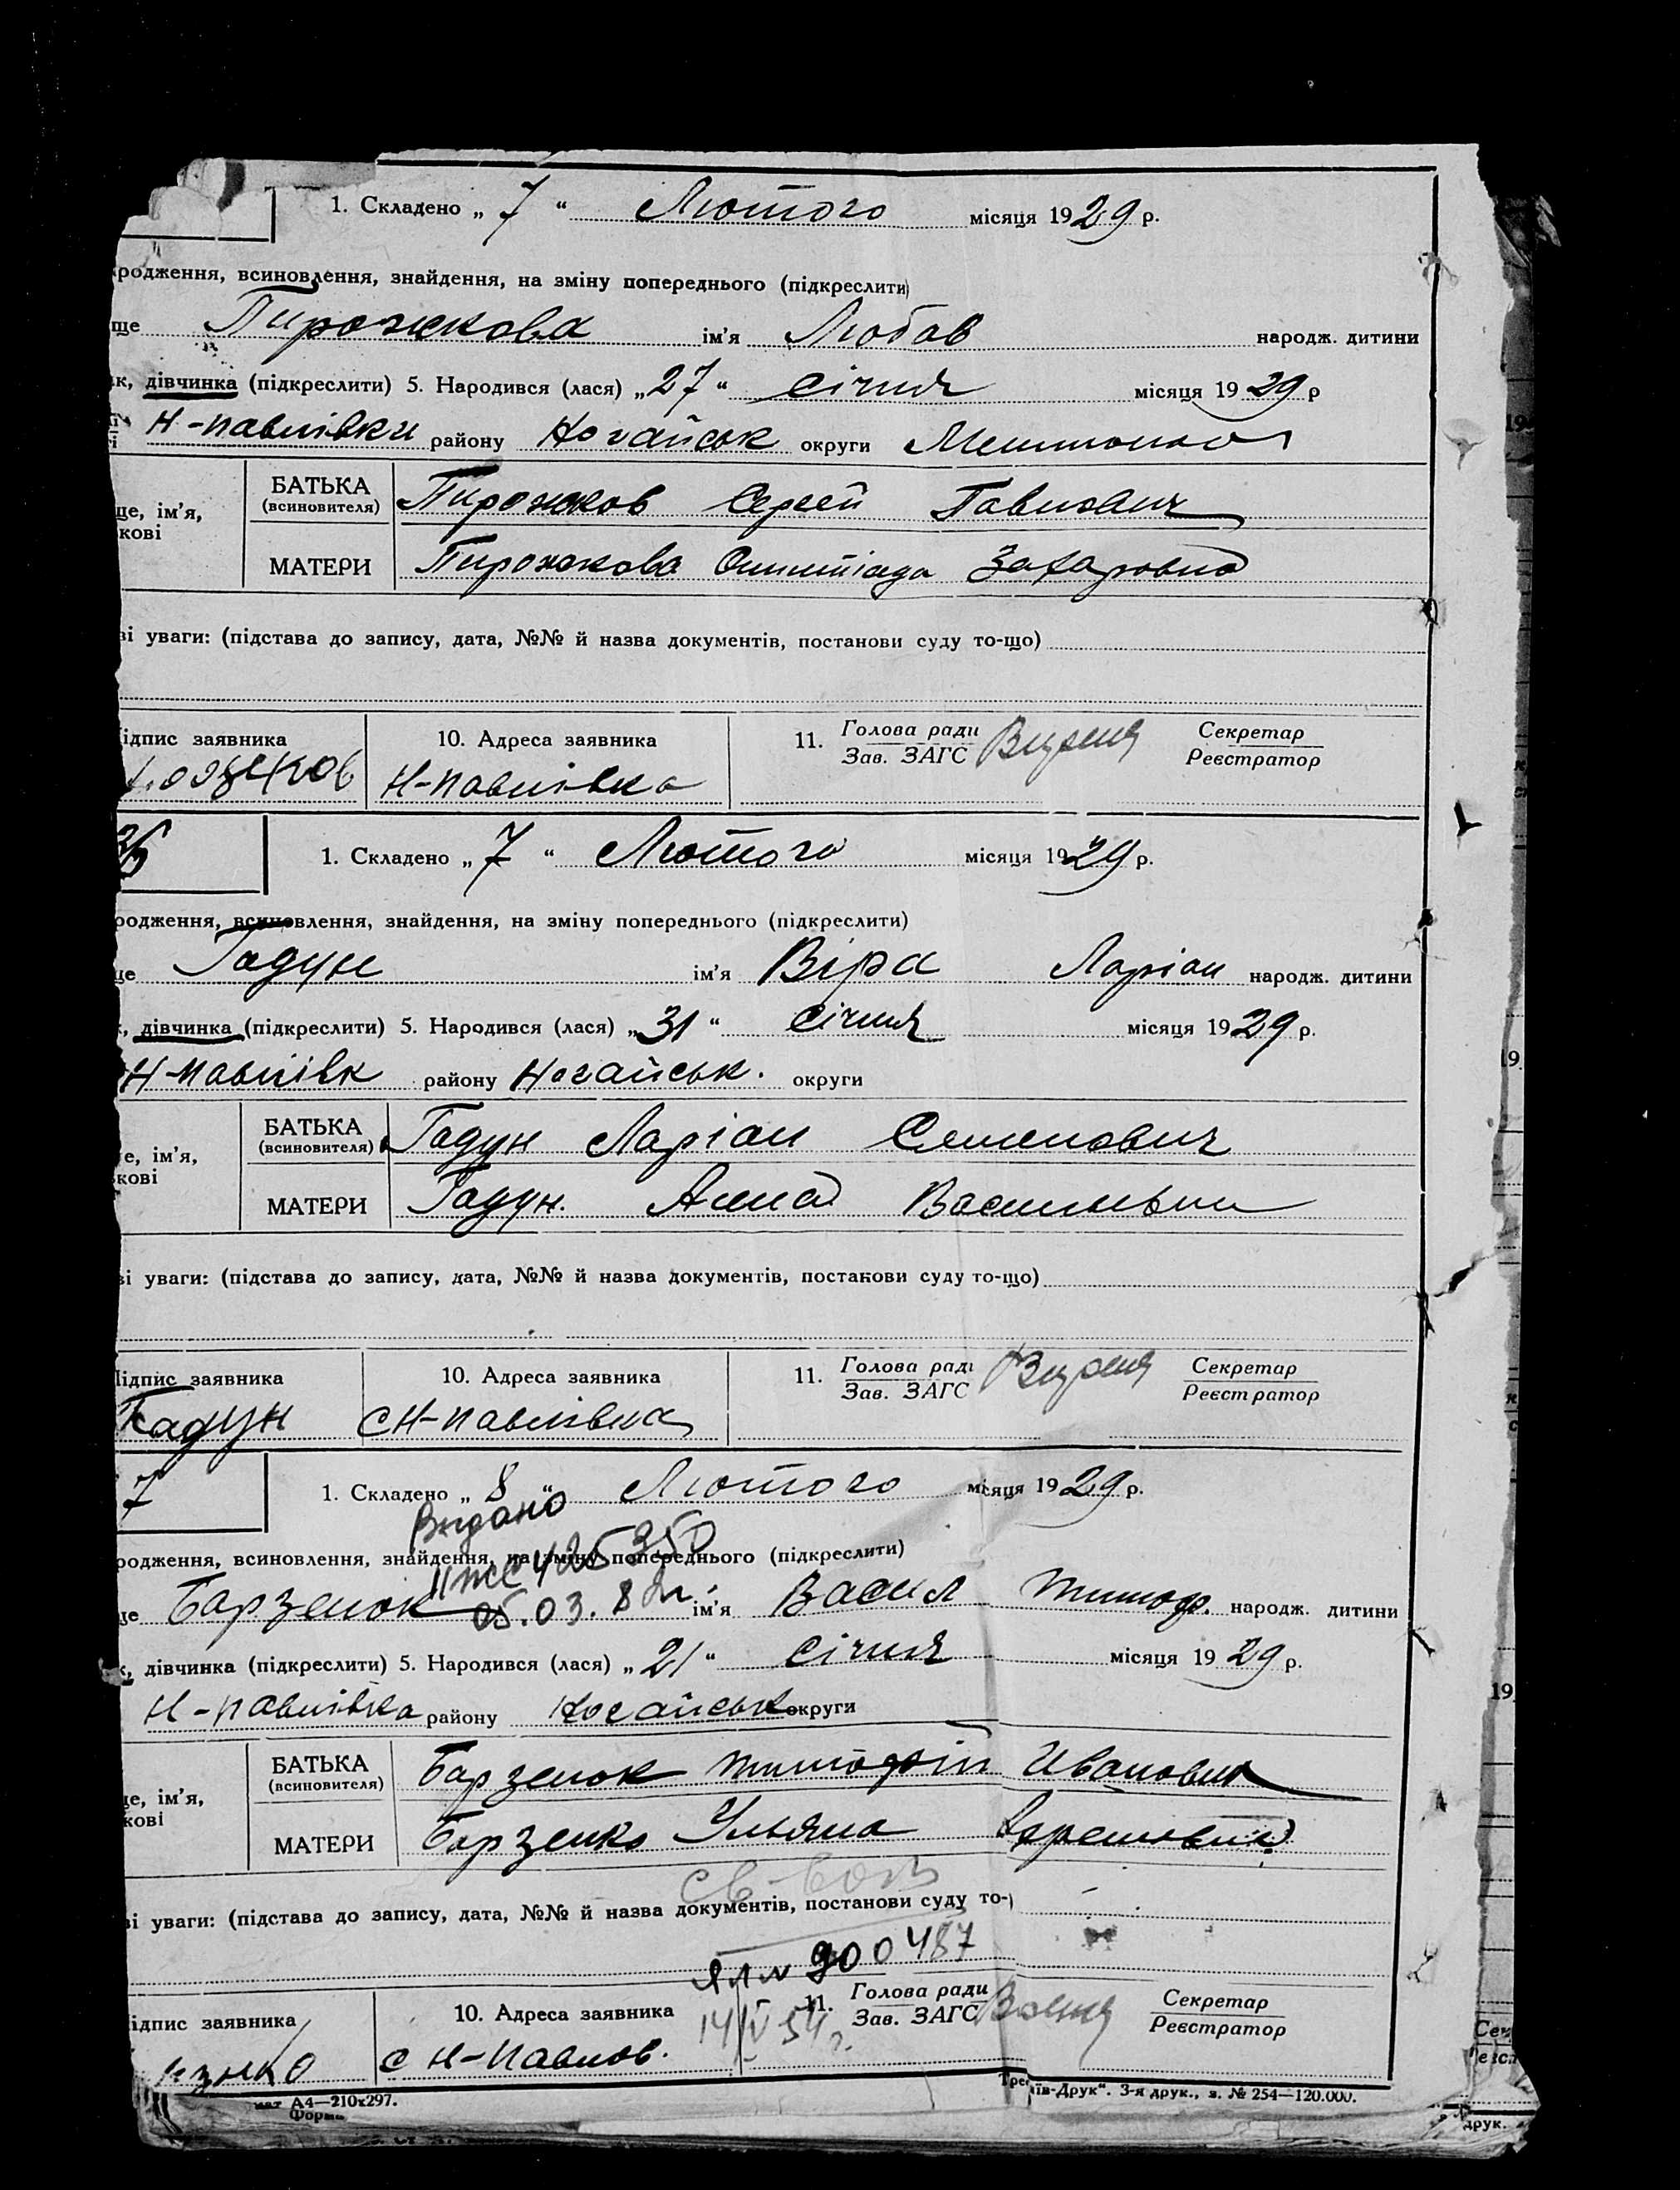 1. Складено „ 7 “ Лютого місяця 1929 р.
родження, всиновлення, знайдення, на зміну попереднього (підкреслити)
ще Пирожкова ім'я Любов народж. дитини
ик, дівчинка (підкреслити) 5. Народився (лася) „27“ січня місяця 1929 р
Н-павлівки району Ногайськ округи
БАТЬКА
(всиновителя) Пирожков Сергей Павлович
ще, ім'я,
кові
МАТЕРИ Пирожкова Олимпіада Захаровна
ві уваги: (підстава до запису, дата, №№ й назва документів, постанови суду то-що)
Підпис заявника 10. Адреса заявника 11. Голова ради Секретар
Зав. ЗАГС Реєстратор
Н-павлівка
36 1. Складено „ 7 “ Лютого місяця 1929 р.
родження, всиновлення, знайдення, на зміну попереднього (підкреслити)
ще Гадун ім'я Віра Ларіон народж. дитини
к, дівчинка (підкреслити) 5. Народився (лася) „31“ січня місяця 1929 р.
Н-павлівк району Ногайськ. округи
БАТЬКА
(всиновителя) Гадун Ларіон Семенович
е, ім'я,
кові
МАТЕРИ Гадун. Анна Васильевна
ві уваги: (підстава до запису, дата, №№ й назва документів, постанови суду то-що)
Підпис заявника 10. Адреса заявника 11. Голова раді Секретар
Зав. ЗАГС Реєстратор
Гадун с Н-павлівка
7 1. Складено „ 8 “ Лютого місяця 1929 р.
Видано
родження, всиновлення, знайдення, на зміну попереднього (підкреслити)
II ЖС 425350
ще Барзенок 05.03.8 ім'я Васил Тимоф. народж. дитини
к, дівчинка (підкреслити) 5. Народився (лася) „ 21 “ січня місяця 1929 р.
Н-павлівка району Ногайськ округи
БАТЬКА
(всиновителя) Барзенок Тимофій Иванович
ще, ім'я,
кові
МАТЕРИ Барзенко Ульяна
ві уваги: (підстава до запису, дата, №№ й назва документів, постанови суду то-)
900487
Підпис заявника 10. Адреса заявника 11. Голова ради Секретар
14/IV 54 г. Зав. ЗАГС Реєстратор
с Н-Павлов.
мат А4—210х297. Трес їв-Друк“. 3-я друк., з. № 254—120.000.
Форма